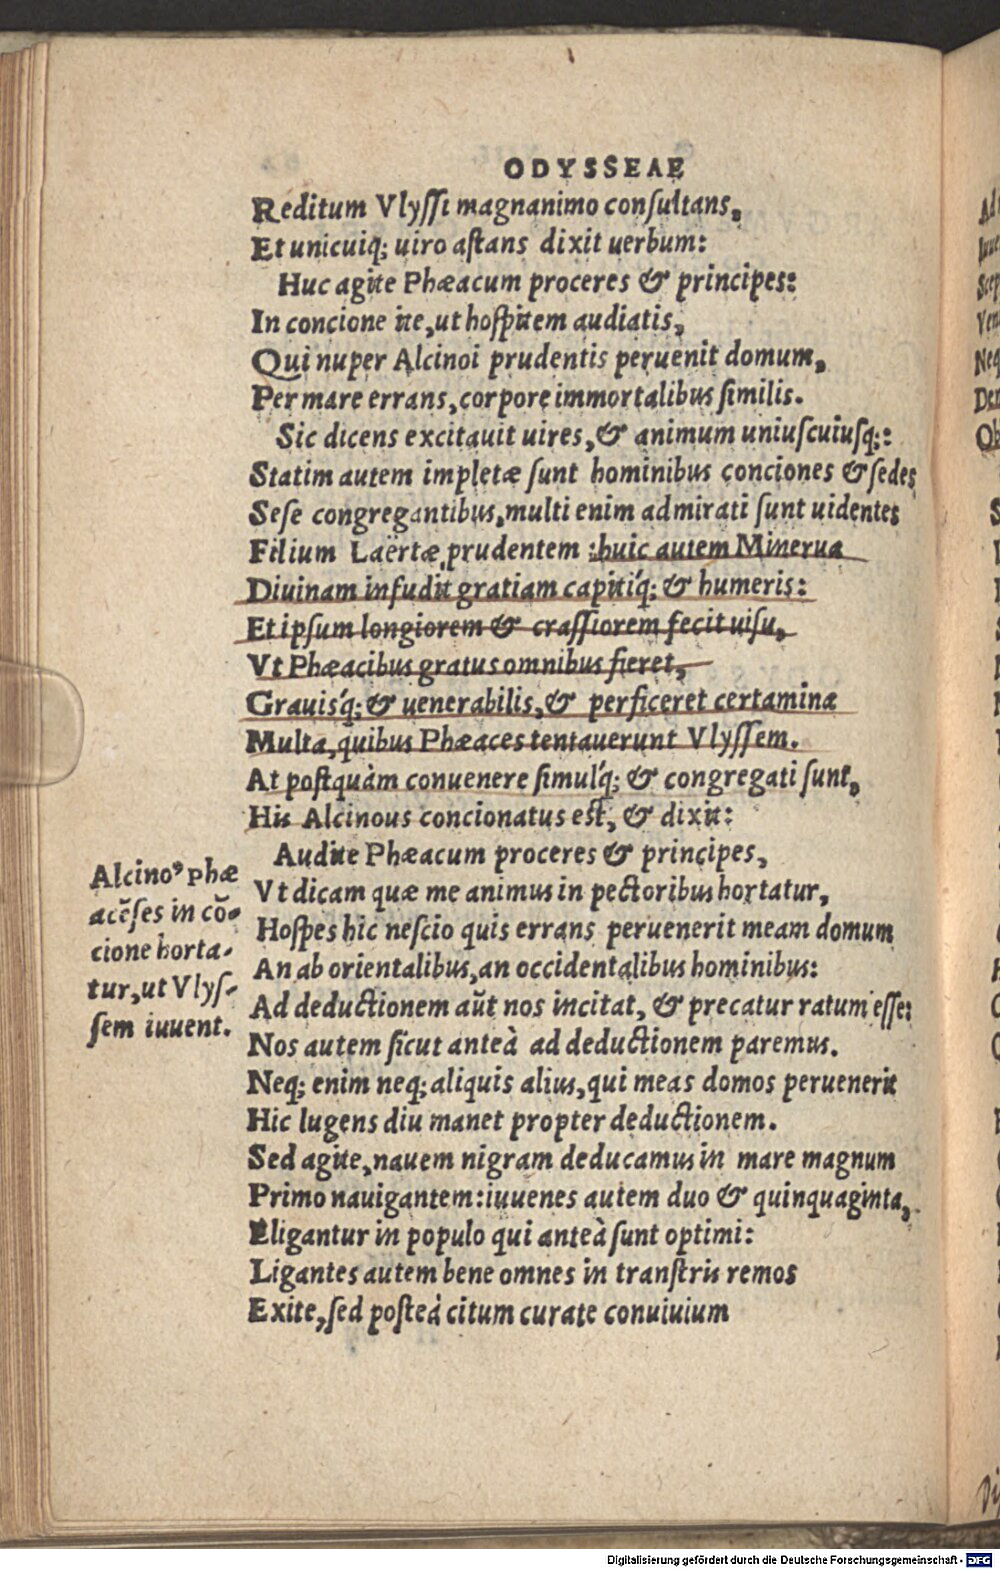 ODYSSEAE
Reditum Vlyssi magnanimo consultans,
Et unicuiq; uiro astans dixit uerbum:
Huc agite Phæacum proceres & principes:
In concione ite, ut hospitem audiatis,
Qui nuper Alcinoi prudentis peruenit domum,
Per mare errans, corpore immortalibus similis.
Sic dicens excitauit uires, & animum uniuscuiusq;:
Statim autem impletæ sunt hominibus conciones & sedes
Sese congregantibus, multi enim admirati sunt uidentes
Filium Laërtæ prudentem: huic autem Minerua
Diuinam infudit gratiam capitiq́; & humeris:
Et ipsum longiorem & crassiorem fecit uisu,
Vt Phæacibus gratus omnibus fieret,
Grauisq́; & uenerabilis, & perficeret certamina
Multa, quibus Phæaces tentauerunt Vlyssem.
At postquàm conuenere simulq́; & congregati sunt,
His Alcinous concionatus est, & dixit:
Audite Phæacum proceres & principes,
Vt dicam quæ me animus in pectoribus hortatur,
Hospes hic nescio quis errans peruenerit meam domum
An ab orientalibus, an occidentalibus hominibus:
Ad deductionem aūt nos incitat, & precatur ratum esse:
Nos autem sicut anteà ad deductionem paremus.
Neq; enim neq; aliquis alius, qui meas domos peruenerit
Hic lugens diu manet propter deductionem.
Sed agite, nauem nigram deducamus in mare magnum
Primo nauigantem: iuuenes autem duo & quinquaginta,
Eligantur in populo qui anteà sunt optimi:
Ligantes autem bene omnes in transtris remos
Exite, sed posteà citum curate conuiuium
Alcinoꝰ phæ
acēses in cō-
cione horta-
tur, ut Vlys-
sem iuuent.
Digitalisierung gefördert durch die Deutsche Forschungsgemeinschaft - DFG